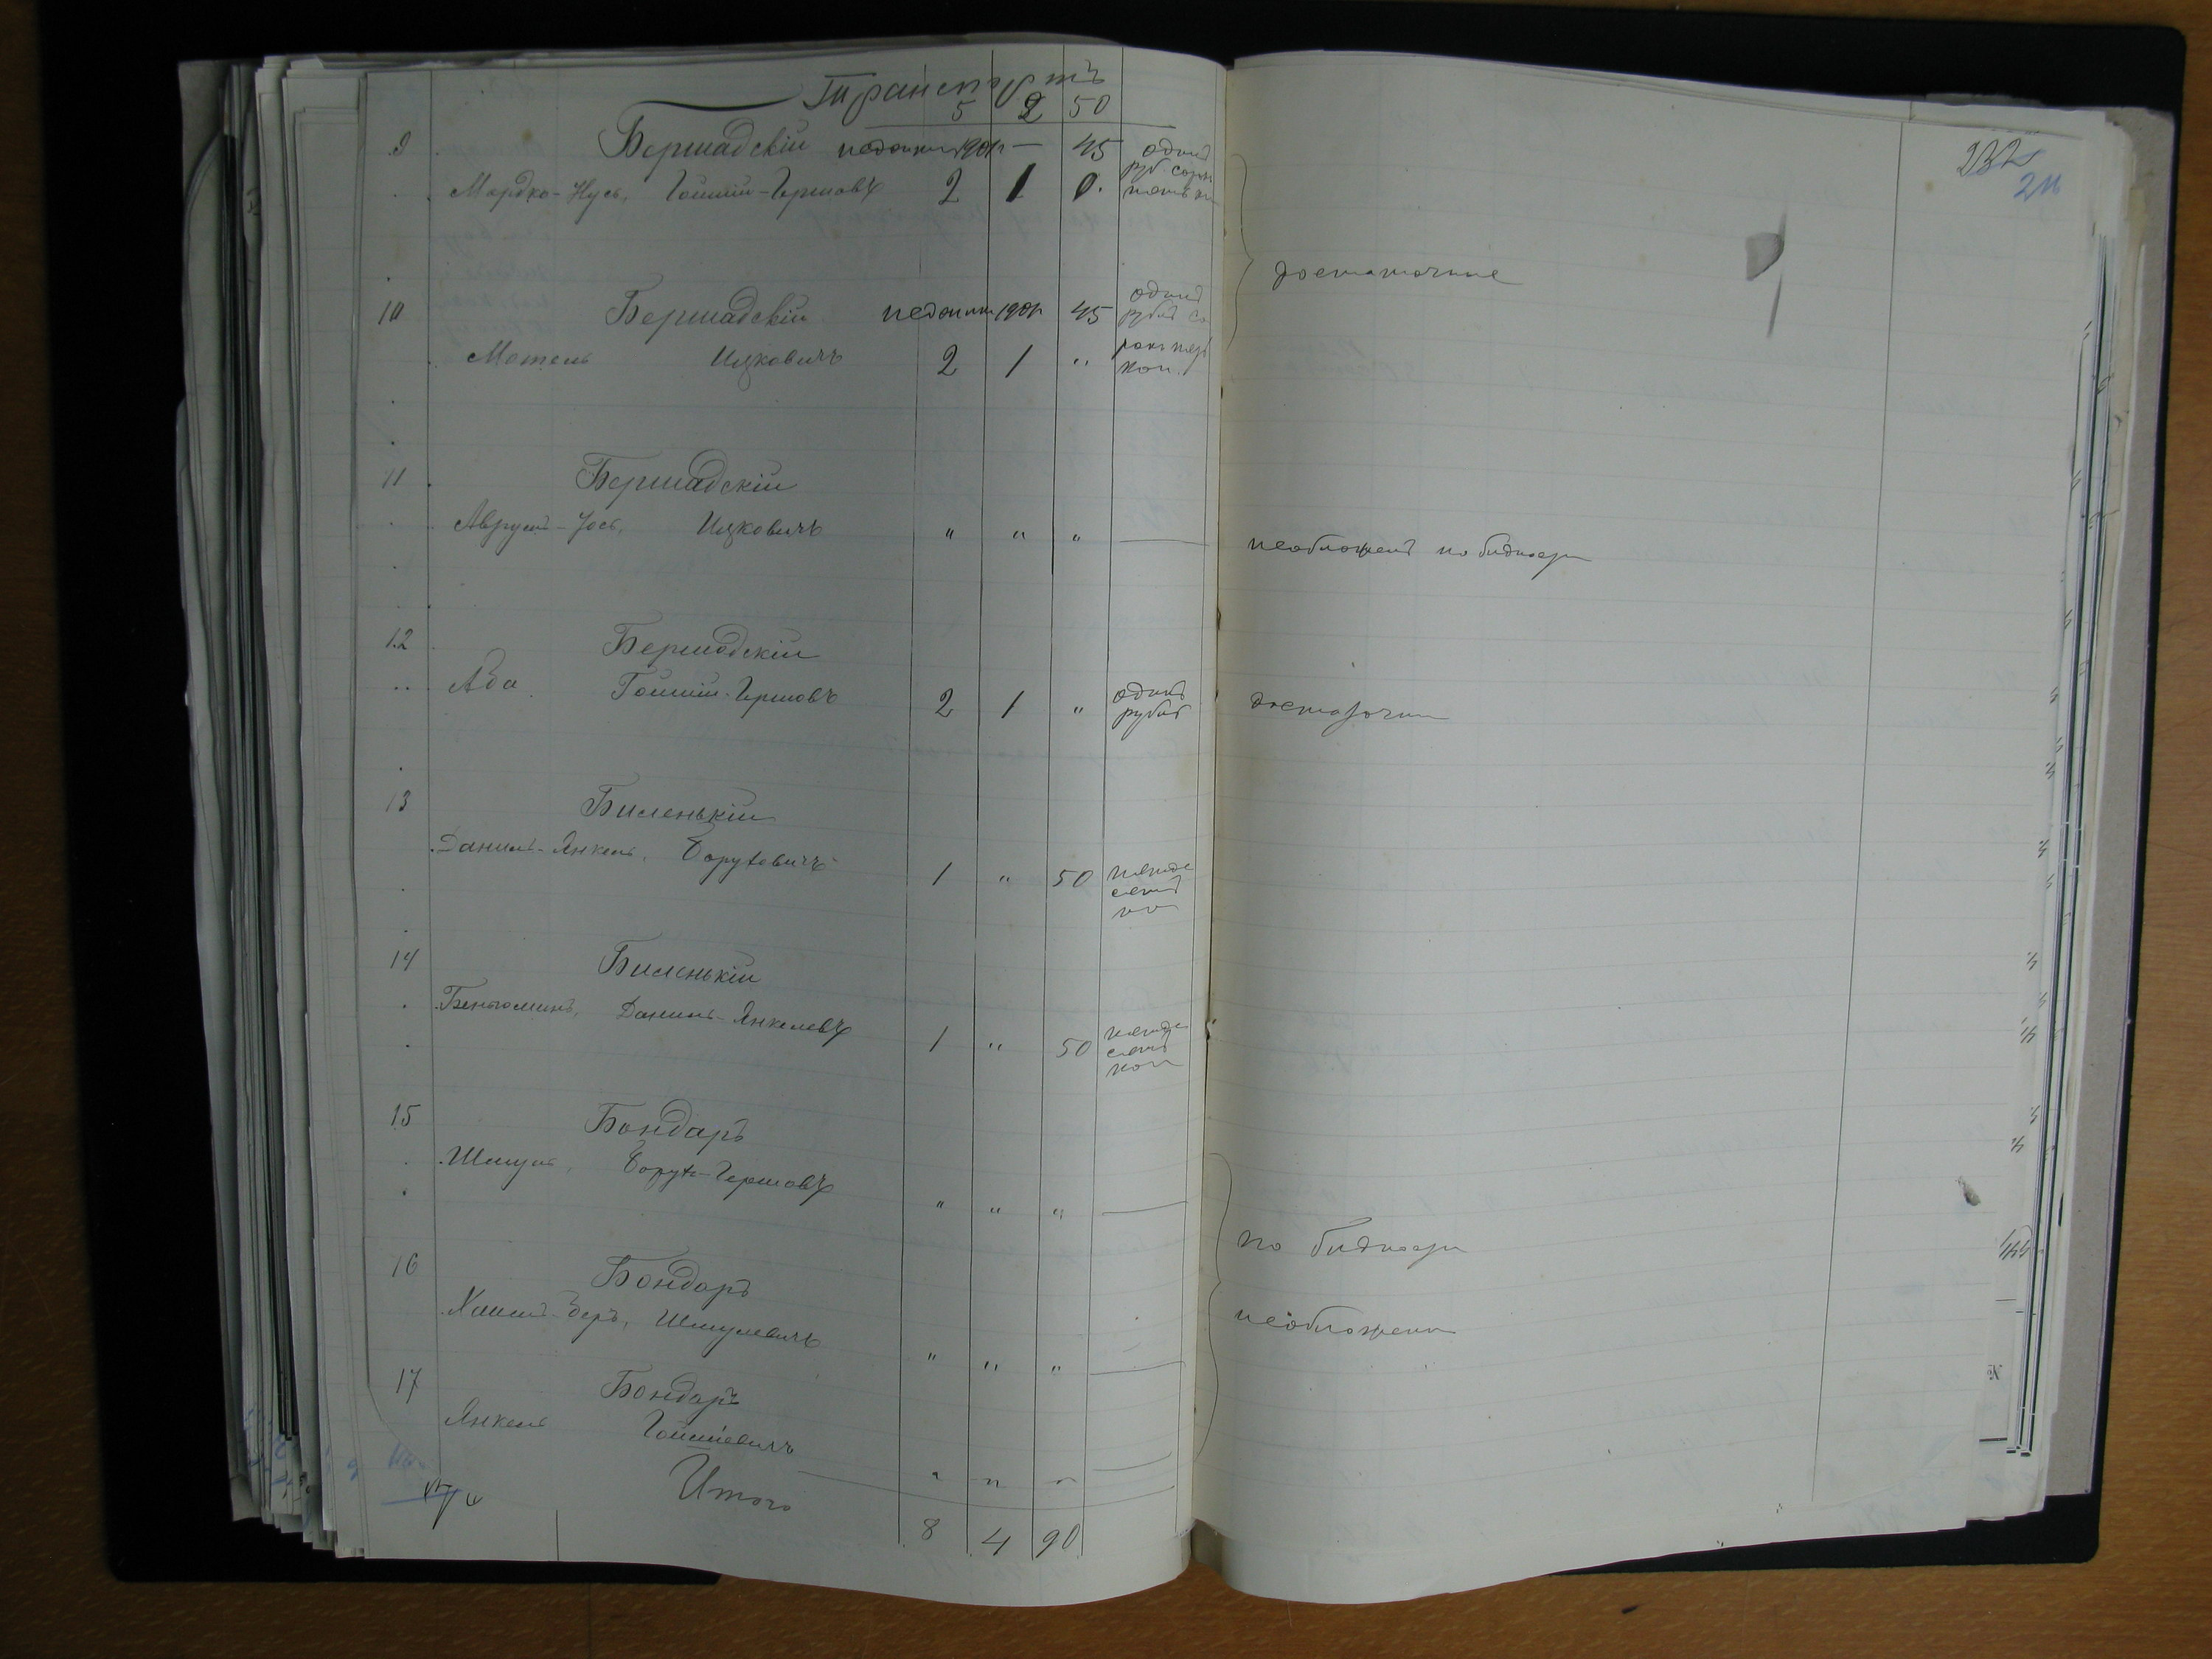 Транспортъ
5 2 50
9 Бершадскій недоимки 1901 г — 45 одинъ
руб. сорокъ
Мордко-Нусь, Гойшій-Гершовъ 2 1 0. пять ко
достаточные
10 Бершадскій недоимки 1901 г 45 одинъ
рубль со
Мотель Ицковичъ 2 1 " рокъ пять
коп.
11 Бершадскій
Аврумъ-Іось, Ицковичъ " " " — необложенъ по бидности
12 Бершадскій
Аба Гойшій-Гершовъ 2 1 " одинъ
рубль
достаточны
13 Биленькій
Даниль-Янкель, Боруховичъ 1 " 50 пятьде
сятъ
коп
14 Биленькій
Беньюминъ, Даниль-Янкелевъ 1 " 50 пятьде
сятъ
коп
15 Бондаръ
Шмуль, Борухъ-Гершовъ " " " —
по бидности
16 Бондаръ
Хаимъ-Беръ, Шмулевичъ " " " —
необложены
17 Бондаръ
Янкель Гойшіевичъ " " " —
Итого 8 4 90
232
211